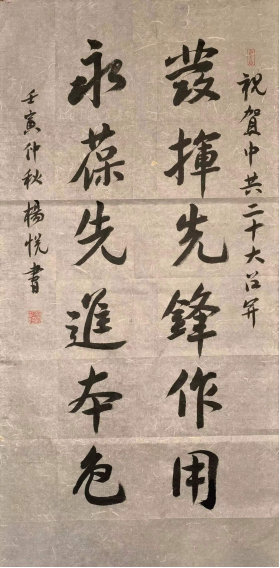 祝賀中共二十大召开
發揮先鋒作用
永葆先進本色
壬寅仲秋楊悦書